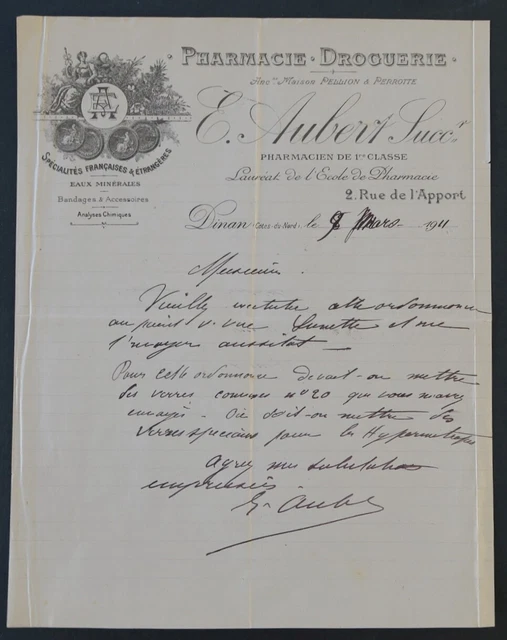 PHARMACIE · DROGUERIE
Anc.ne Maison PELLION & PERROTTE
E. Aubert Succ.r
PHARMACIEN DE 1re CLASSE
Lauréat de l'Ecole de Pharmacie
2. Rue de l'Apport
EA
SPÉCIALITÉS FRANÇAISES & ÉTRANGÈRES
EAUX MINÉRALES
Bandages & Accessoires
Analyses Chimiques
Dinan (Côtes-du-Nord), le 9 Mars 1911
Monsieur
Veuillez cette ordonnance
au point de vue lunette et me
l'envoyer aussitôt —
Pour cette ordonnance devait-on mettre
des verres convexes n° 20 que vous m'avez
envoyé - Où doit-on mettre des
verres spéciaux pour les Hypermétropes
Agréez mes salutations
empressées
E. Aubert